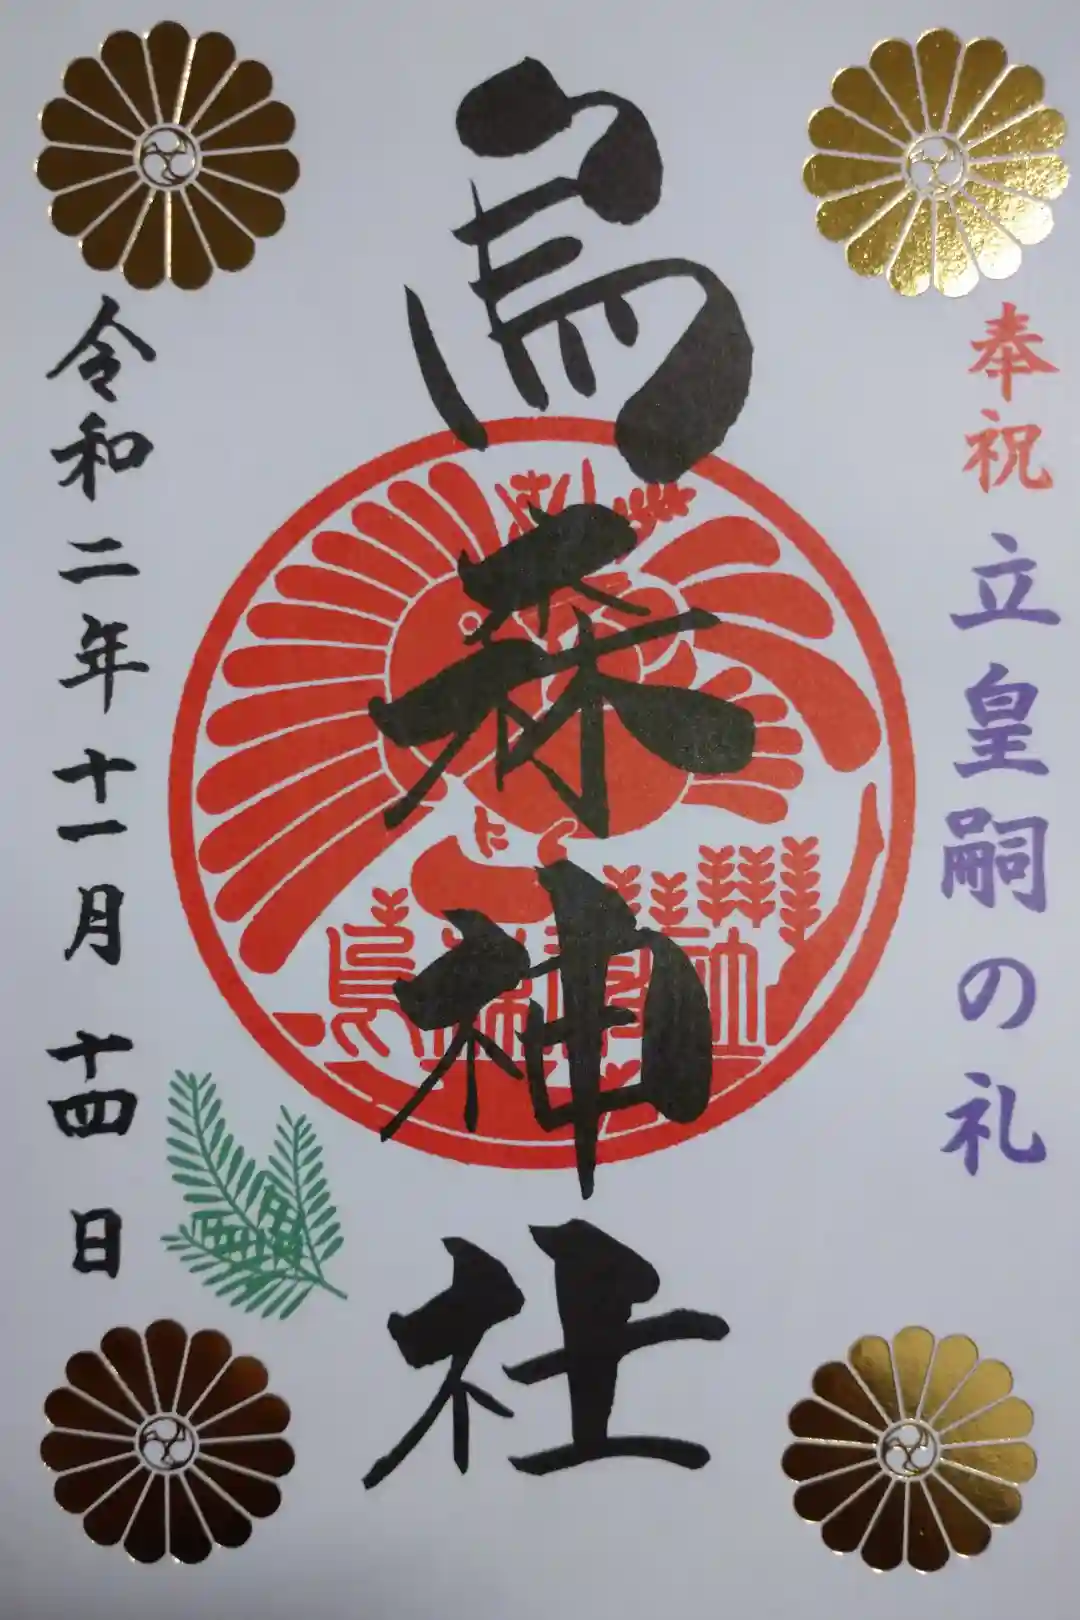 奉祝 立皇嗣の礼
烏森神社
令和二年十一月十四日